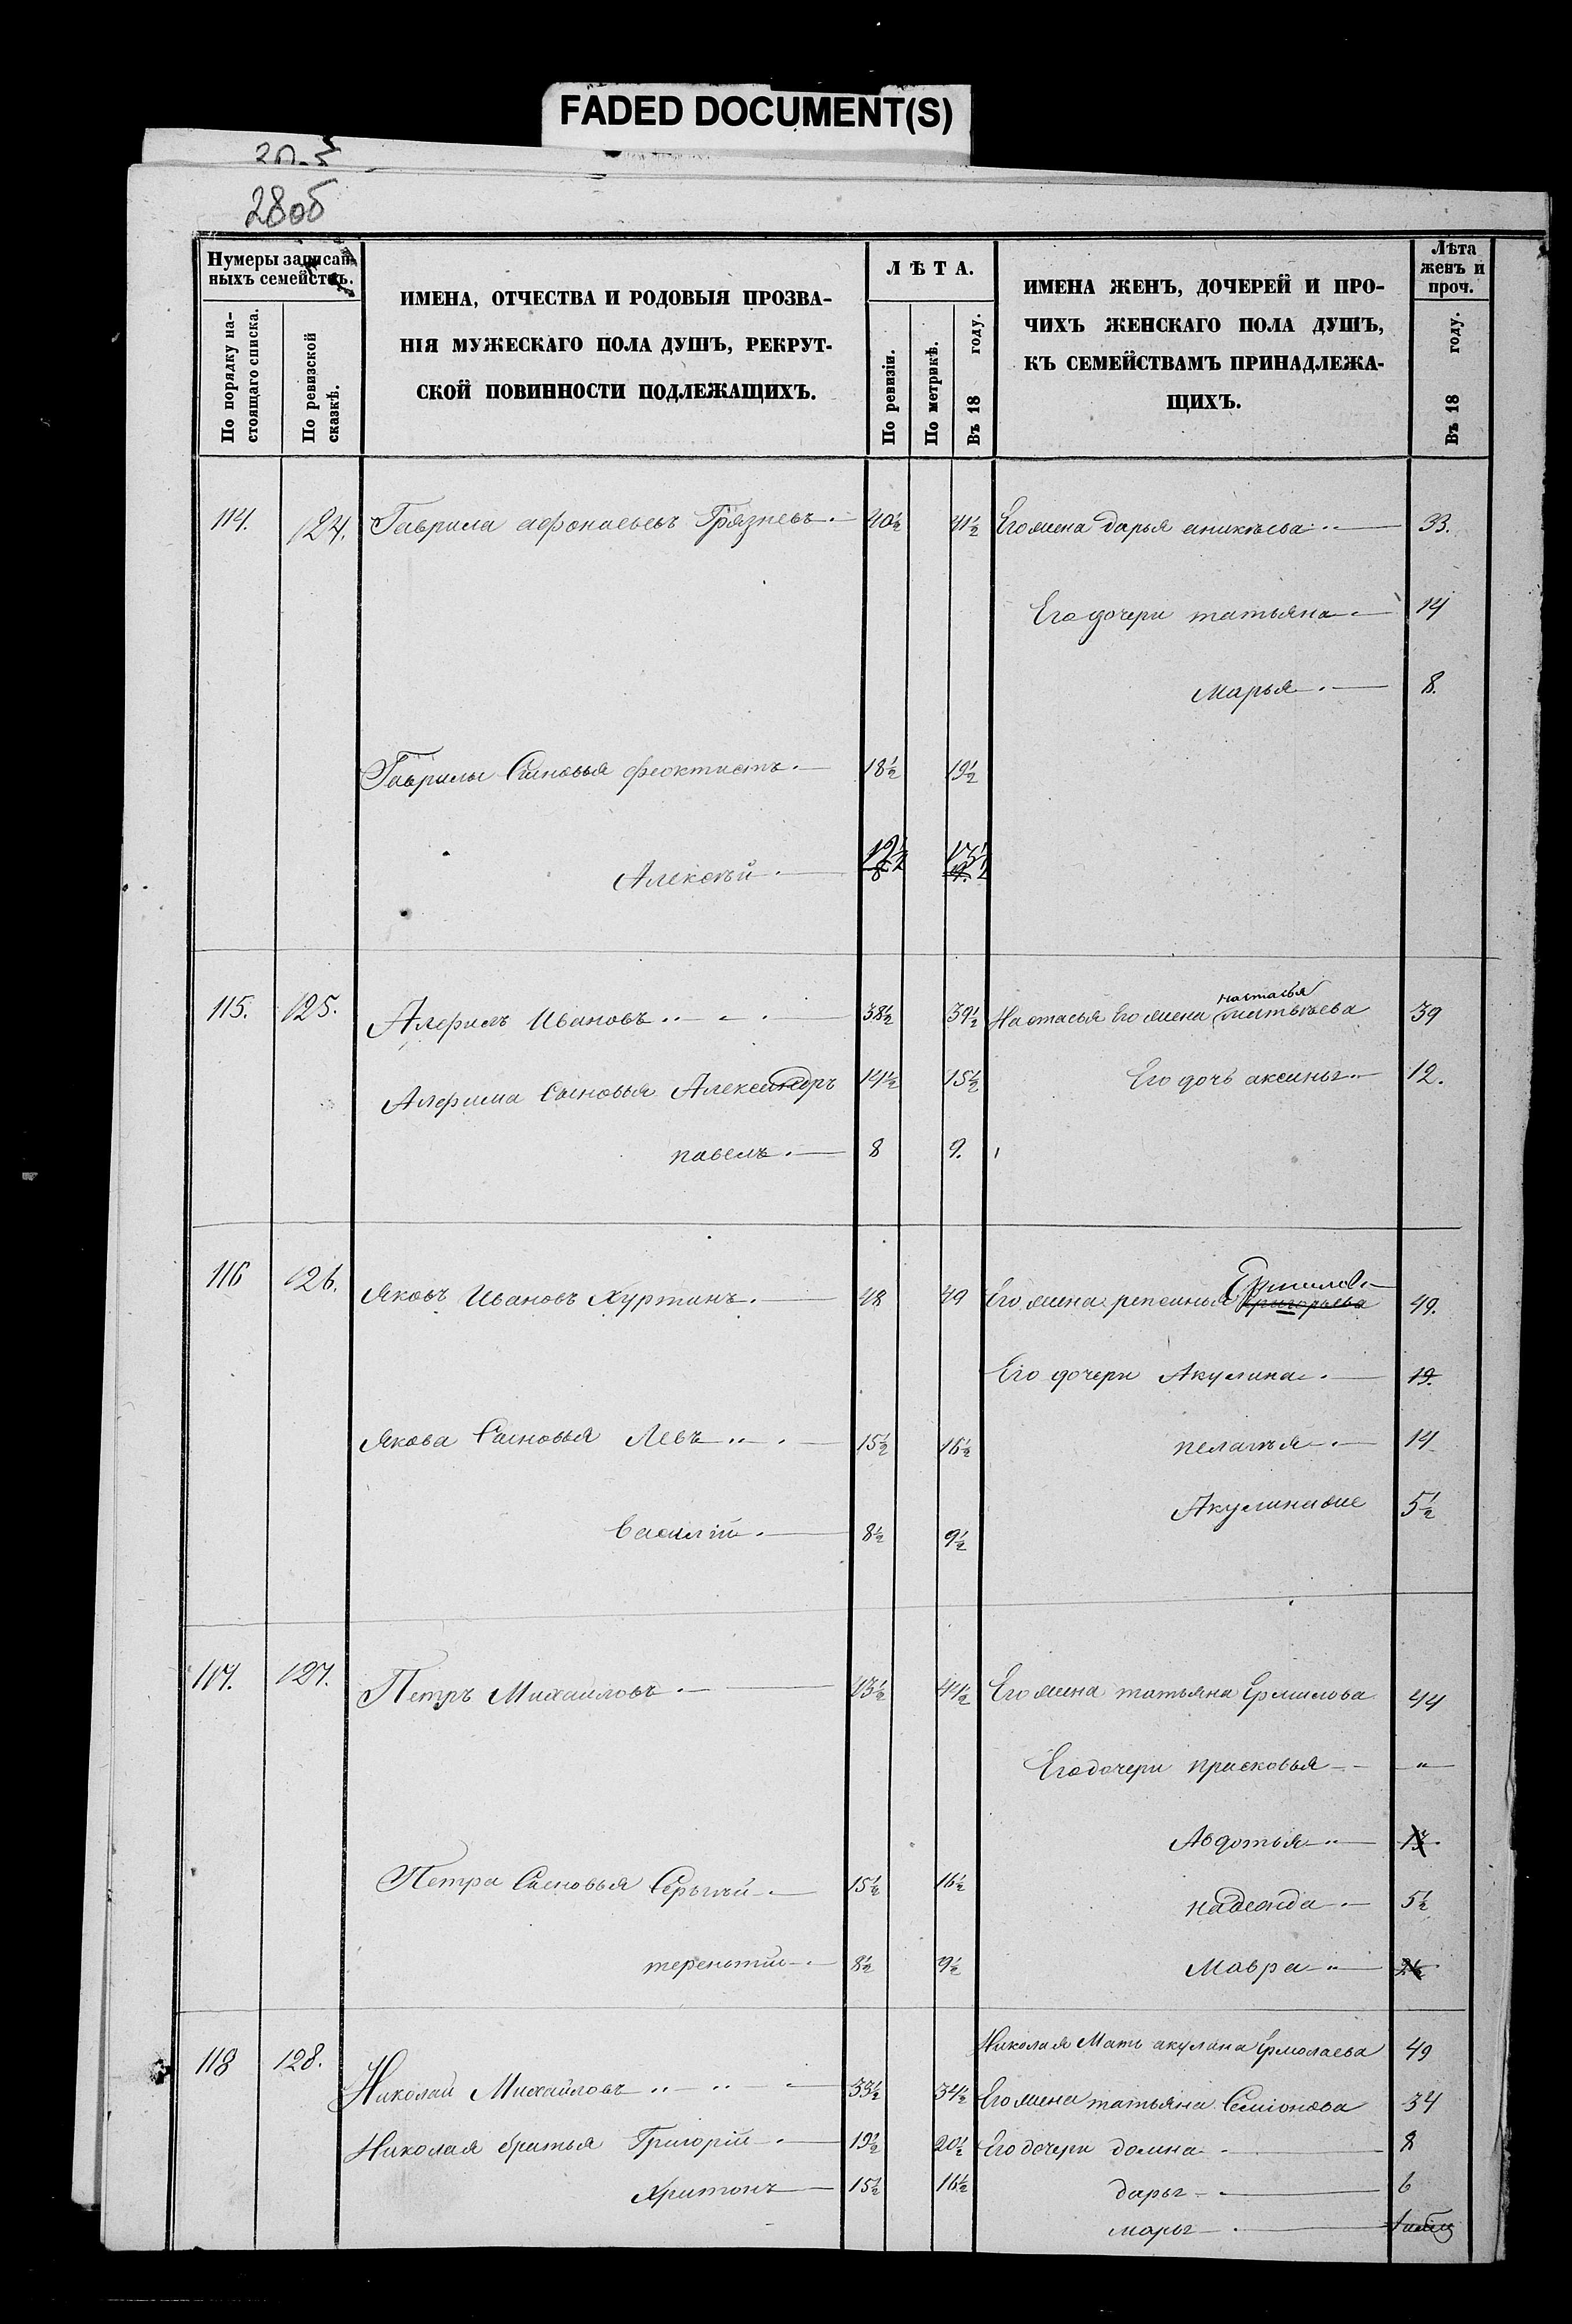 FADED DOCUMENT(S)
28об
Нумеры записан-
ныхъ семействъ.
По порядку на-
стоящаго списка.
По ревизской
сказкѣ.
ИМЕНА, ОТЧЕСТВА И РОДОВЫЯ ПРОЗВА-
НІЯ МУЖЕСКАГО ПОЛА ДУШЪ, РЕКРУТ-
СКОЙ ПОВИННОСТИ ПОДЛЕЖАЩИХЪ.
ЛѢТА.
По ревизіи.
По метрикѣ.
Въ 18 году.
ИМЕНА ЖЕНЪ, ДОЧЕРЕЙ И ПРО-
ЧИХЪ ЖЕНСКАГО ПОЛА ДУШЪ,
КЪ СЕМЕЙСТВАМЪ ПРИНАДЛЕЖА-
ЩИХЪ.
Лѣта
женъ и
проч.
Въ 18 году.
114. 124. Гаврила афонасьевъ Грязневъ 40½ 41½ Его жена дарья аникѣева 33.
Его дочери татьяна 14
марья 8.
Гаврилы Сыновья феоктистъ 18½ 19½
Алексѣй 12½ 13½
115. 125. Алфимъ Ивановъ 38½ 39½ Настасья Его жена матвѣева 39
настасья
Алфима Сыновья Александръ 14½ 15½ Его дочь аксинья 12.
павелъ 8 9.
116 126. Яковъ Ивановъ Хуртинъ 48 49 Его жена репсинья Григорьева 49.
Ермилова
Его дочери Акулина 19.
Якова Сыновья Левъ 15½ 16½ пелагѣя 14
Акулина 5½
Василій 8½ 9½
117. 127. Петръ Михайловъ 43½ 44½ Его жена татьяна Ермилова 44
Его дочери прасковья "
Авдотья 13
Петра Сыновья Сергѣй 15½ 16½ надежда 5½
терентій 8½ 9½ Мавра
Николая Мать акулина Ермолаева 49
118 128. Николай Михайловъ 33½ 34½ Его жена татьяна Семіонова 34
Николая братья Григорій 19½ 20½ Его дочери домна 8
Харитонъ 15½ 16½ дарья 6
марья